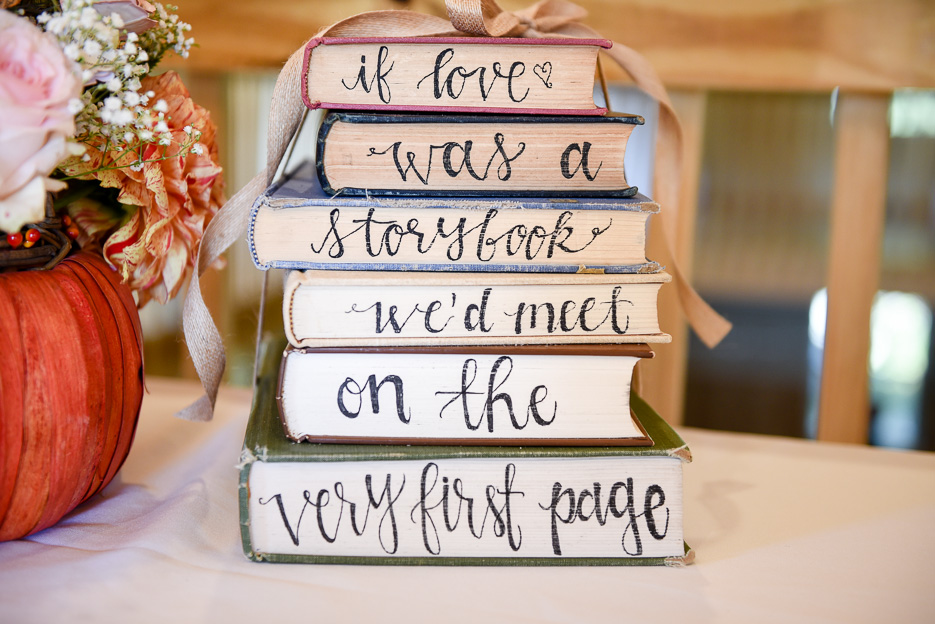 if love♡
was a
storybook
we'd meet
on the
very first page